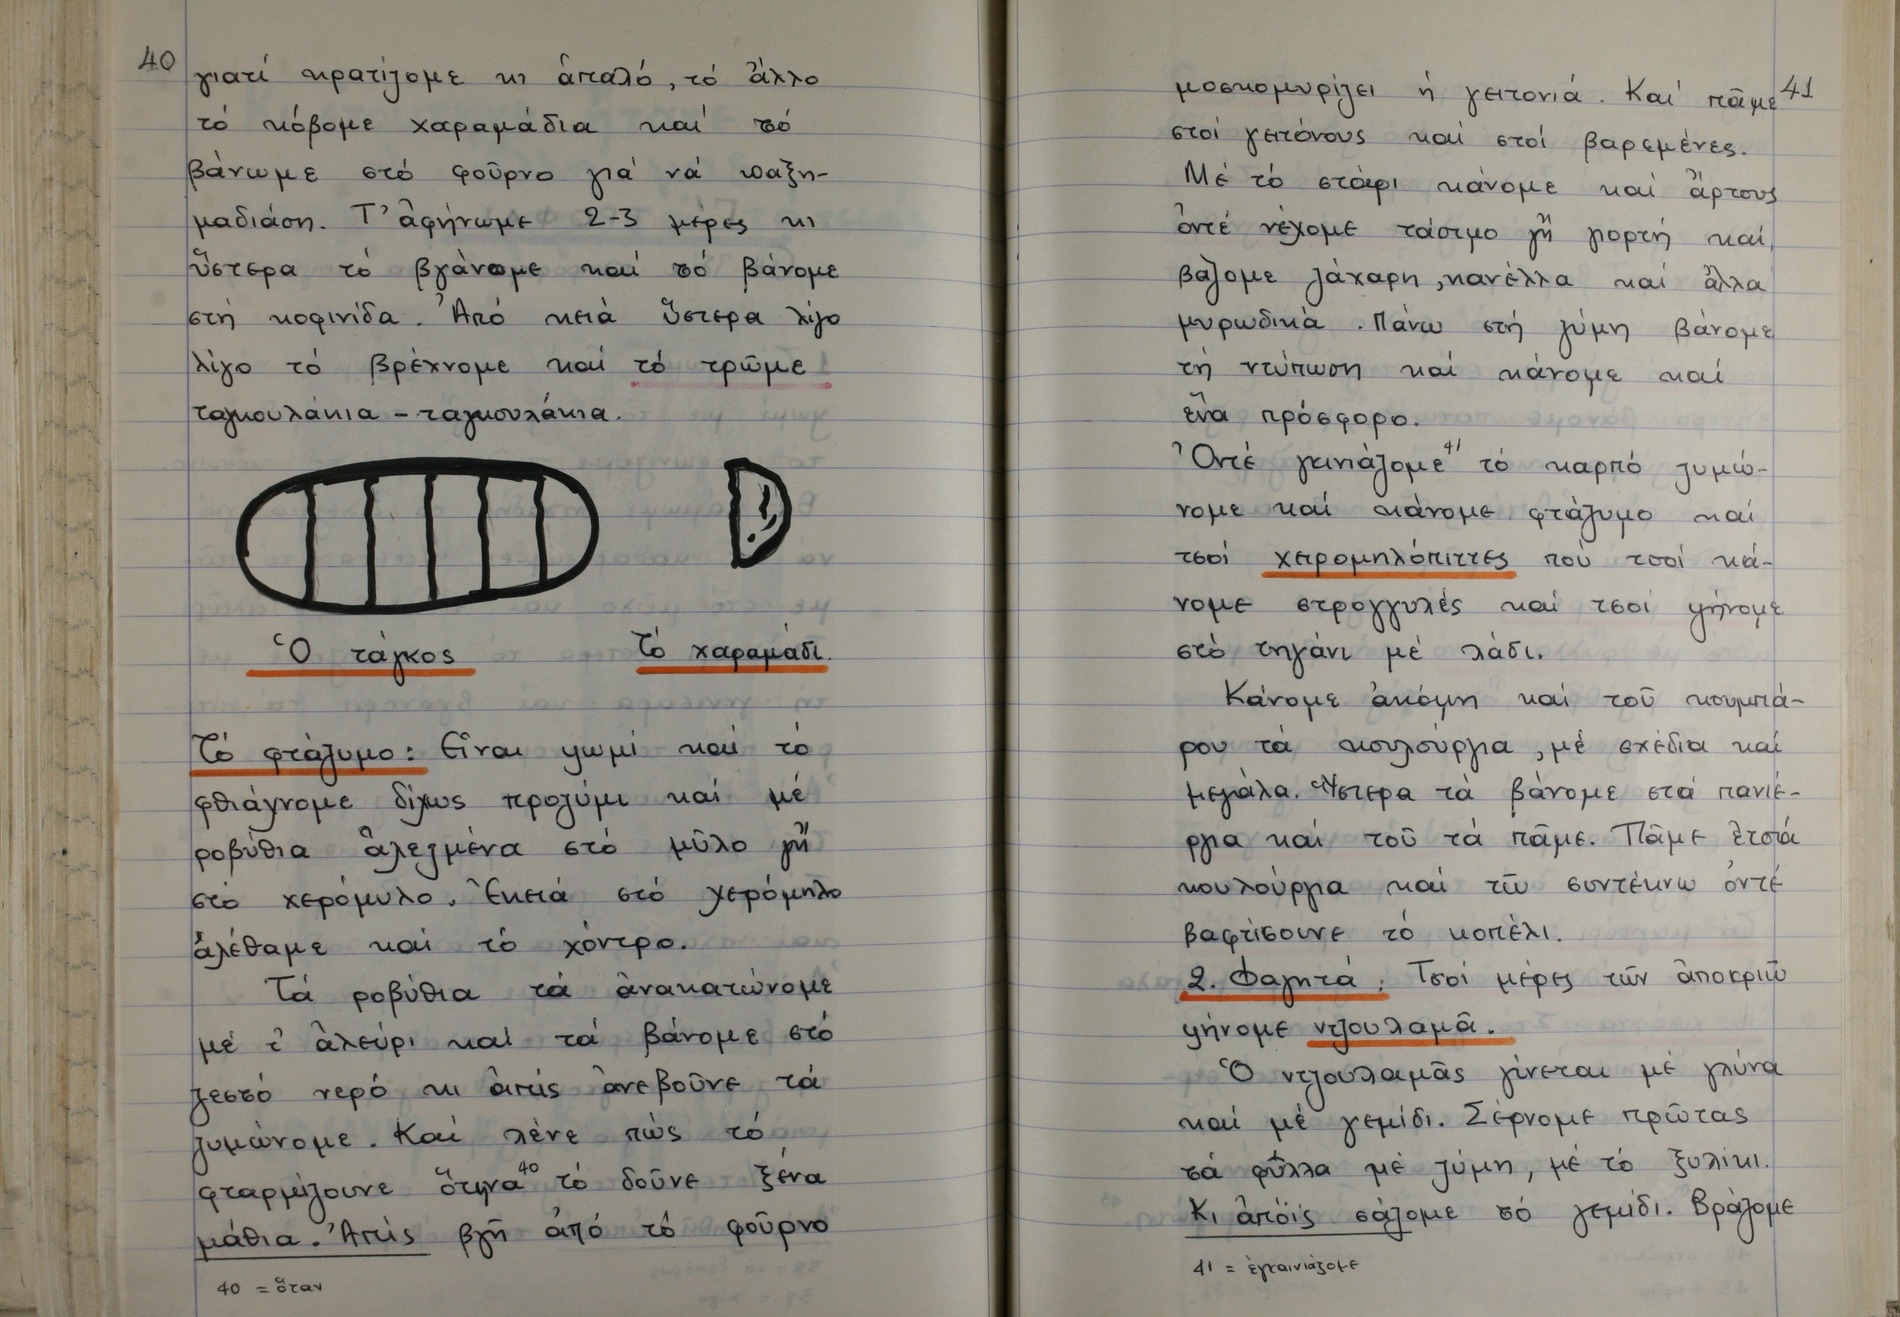 40
γιατί κρατίζομε κι ἁπαλό, τό ἄλλο
τό κόβομε χαραμάδια καί τό
βάνωμε στό φοῦρνο γιά νά παξη-
μαδιάση. Τ' ἀφήνωμε 2-3 μέρες κι
ὕστερα τό βγάνομε καί τό βάνομε
στή κοφινίδα. Ἀπό κειά ὕστερα λίγο
λίγο τό βρέχνομε καί τό τρῶμε
ταγκουλάκια - ταγκουλάκια.
Ὁ τάγκος Τό χαραμάδι.
Τό φτάζυμο: Εἶναι ψωμί καί τό
φθιάχνομε δίχως προζύμι καί μέ
ροβύθια ἀλεσμένα στό μῦλο γῆ
στό χερόμυλο. Ἐκειά στό χερόμηλο
ἀλέθαμε καί τό χόντρο.
Τά ροβύθια τά ἀνακατώνομε
μέ τ' ἀλεύρι και τά βάνομε στό
ζεστό νερό κι ἀπής ἀνεβοῦνε τά
ζυμώνομε. Καί λένε πώς τό
φταρμίζουνε ὅτινα⁴⁰ τό δοῦνε ξένα
μάθια. Ἀπής βγῆ ἀπό τό φοῦρνο
40 = ὅταν
41
μοσκομυρίζει ἡ γειτονιά. Καί πᾶμε
στοί γειτόνους καί στοί βαρεμένες.
Μέ τό στάρι κάνομε καί ἄρτους
ὀντέ νέχομε τάσιμο γῆ γιορτή καί
βάζομε ζάχαρη, κανέλλα καί ἄλλα
μυρωδικά. Πάνω στή ζύμη βάνομε
τή ντύπωση καί κάνομε καί
ἕνα πρόσφορο.
Ὀντέ γκινιάζομε⁴¹ τό καρπό ζυμώ-
νομε καί κάνομε φτάζυμο καί
τσοί χερομηλόπιττες πού τσοί κά-
νομε στρογγυλές καί τσοί ψήνομε
στό τηγάνι μέ λάδι.
Κάνομε ἀκόμη καί τοῦ κουμπά-
ρου τά κουλούργια, μέ σχέδια καί
μεγάλα. Ὕστερα τά βάνομε στά πανιέ-
ργια καί τοῦ τά πᾶμε. Πᾶμε ἐτσά
κουλούργια καί τῶ συντέκνω ὀντέ
βαφτίσουνε τό κοπέλι.
2. Φαγητά: Τσοί μέρες τῶν ἀποκριῶ
ψήνομε ντζουλαμᾶ.
Ὁ ντζουλαμᾶς γίνεται μέ γλύνα
καί μέ γεμίδι. Σέρνομε πρῶτας
τά φύλλα μέ ζύμη, μέ τό ξυλίκι.
Κι ἀπόις σάζομε τό γεμίδι. Βράζομε
41 = ἐγκαινιάζομε